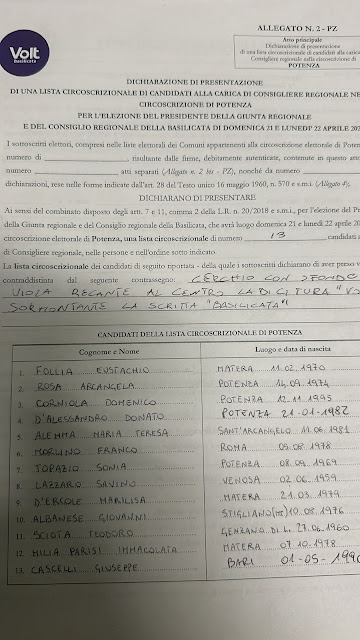 Volt
Basilicata
ALLEGATO N. 2 - PZ
Atto principale
Dichiarazione di presentazione
di una lista circoscrizionale di candidati alla carica
Consigliere regionale nella circoscrizione di
POTENZA
DICHIARAZIONE DI PRESENTAZIONE
DI UNA LISTA CIRCOSCRIZIONALE DI CANDIDATI ALLA CARICA DI CONSIGLIERE REGIONALE NE
CIRCOSCRIZIONE DI POTENZA
PER L'ELEZIONE DEL PRESIDENTE DELLA GIUNTA REGIONALE
E DEL CONSIGLIO REGIONALE DELLA BASILICATA DI DOMENICA 21 E LUNEDI' 22 APRILE 202
I sottoscritti elettori, compresi nelle liste elettorali dei Comuni appartenenti alla circoscrizione elettorale di Potenz
numero di ____________, risultante dalle firme, debitamente autenticate, contenute in questo atto
____________ atti separati (Allegato n. 2 bis - PZ), nonché da numero ____________
dichiarazioni, rese nelle forme indicate dall'art. 28 del Testo unico 16 maggio 1960, n. 570 e s.m.i. (Allegato 4);
DICHIARANO DI PRESENTARE
Ai sensi del combinato disposto degli artt. 7 e 11, comma 2 della L.R. n. 20/2018 e s.m.i., per l'elezione del Pr
della Giunta regionale e del Consiglio regionale della Basilicata, che avrà luogo domenica 21 e lunedì 22 aprile 20
circoscrizione elettorale di Potenza, una lista circoscrizionale di numero 13 candidati a
di Consigliere regionale, nelle persone e nell'ordine sotto indicato.
La lista circoscrizionale dei candidati di seguito riportata - della quale i sottoscritti dichiarano di aver preso v
contraddistinta dal seguente contrassegno: CERCHIO CON SFONDO
VIOLA RECANTE AL CENTRO LA DICITURA "VO
SORMONTANTE LA SCRITTA "BASILICATA"
CANDIDATI DELLA LISTA CIRCOSCRIZIONALE DI POTENZA
Cognome e Nome Luogo e data di nascita
1. FOLLIA EUSTACHIO MATERA 11.02.1970
2. ROSA ARCANGELA POTENZA 14.09.1974
3. CORNIOLA DOMENICO POTENZA 12.11.1995
4. D'ALESSANDRO DONATO POTENZA 21-01-1982
5. ALEMMA MARIA TERESA SANT'ARCANGELO 11.06.1981
6. MORLINO FRANCO ROMA 05.08.1978
7. TOPAZIO SONIA POTENZA 08.09.1969
8. LAZZARO SAVINO VENOSA 02.06.1959
9. D'ERCOLE MARILISA MATERA 21.03.1979
10. ALBANESE GIOVANNI STIGLIANO (MT) 10.08.1976
11. SCIOTA TEODORO GENZANO DI L. 27.06.1960
12. MILIA PARISI IMMACOLATA MATERA 07.10.1978
13. CASCELLI GIUSEPPE BARI 01-05-1990